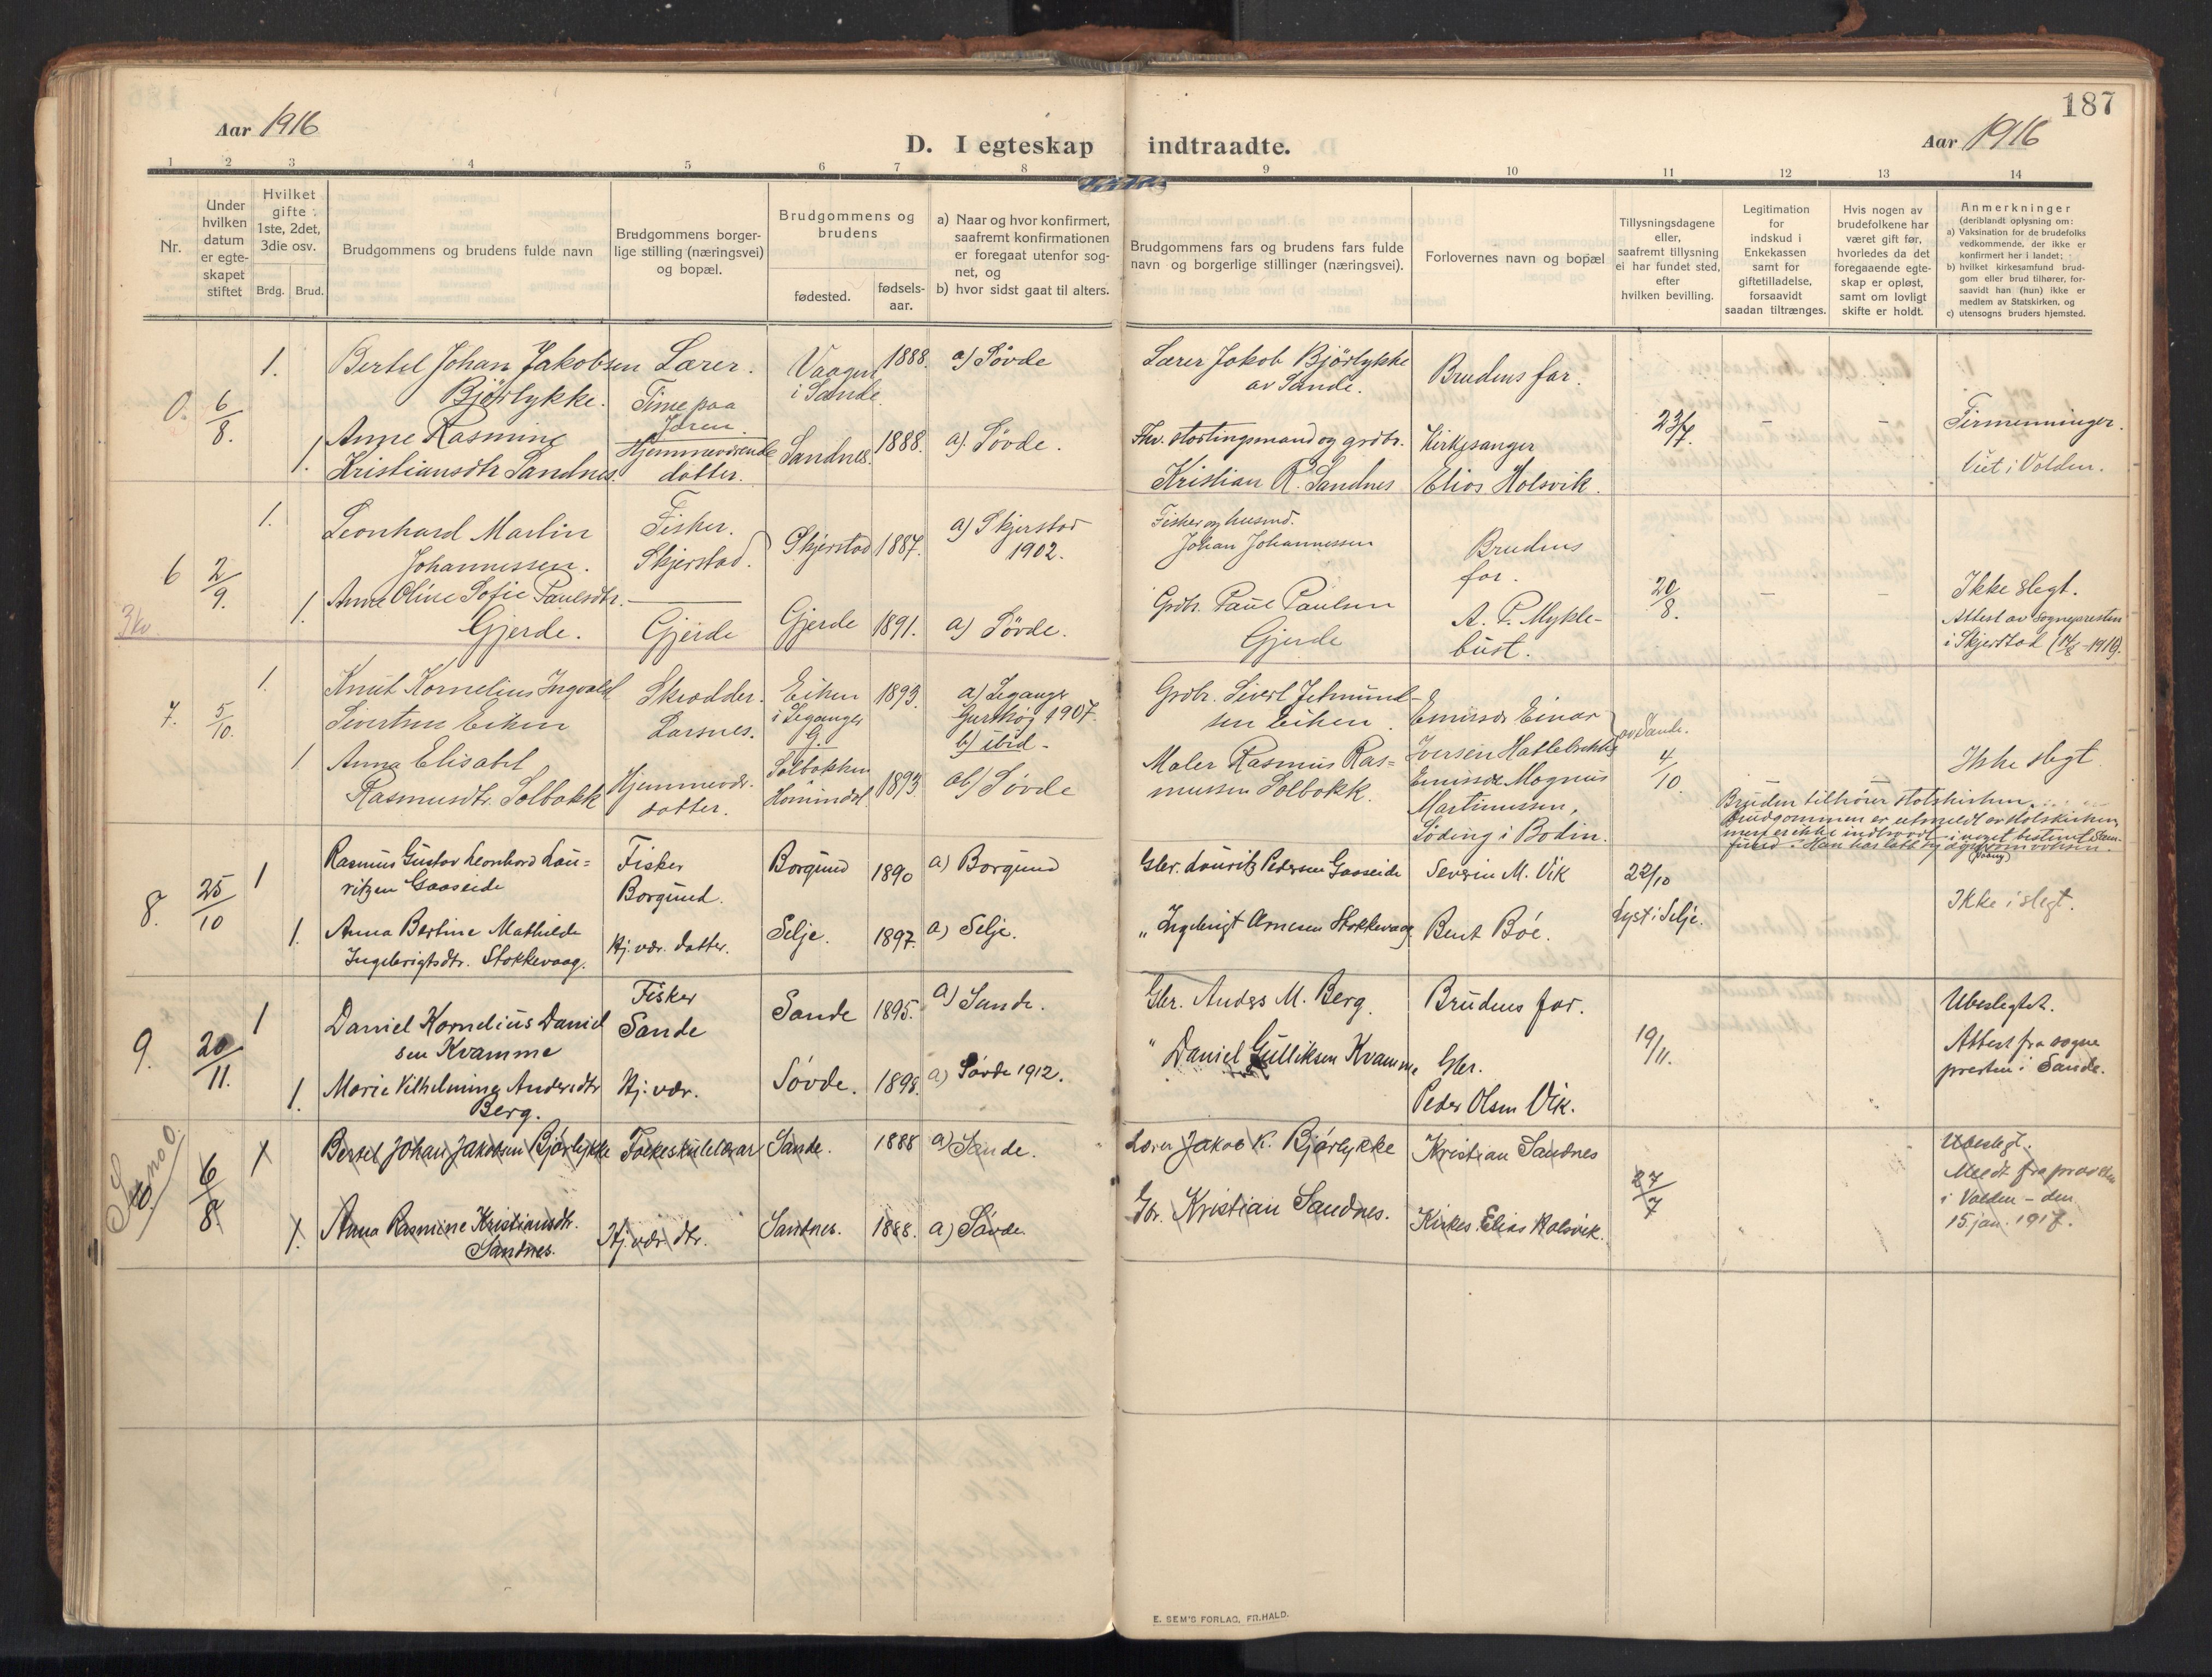 187
Aar 1916
D. I egteskap indtraadte.
Aar 1916
1 2 3 4 5 6 7 8 9 10 11 12 13 14
Nr.
Under
hvilken
datum
er egte-
skapet
stiftet
Hvilket
gifte:
1ste, 2det,
3die osv.
Brdg. Brud.
Brudgommens og brudens fulde navn
Brudgommens borger-
lige stilling (næringsvei)
og bopæl.
Brudgommens og
brudens
fødested.
fødsels-
aar.
a) Naar og hvor konfirmert,
saafremt konfirmationen
er foregaat utenfor sog-
net, og
b) hvor sidst gaat til alters.
Brudgommens fars og brudens fars fulde
navn og borgerlige stillinger (næringsvei).
Forlovernes navn og bopæl
Tillysningsdagene
eller,
saafremt tillysning
ei har fundet sted,
efter
hvilken bevilling.
Legitimation
for
indskud i
Enkekassen
samt for
giftetilladelse,
forsaavidt
saadan tiltrænges.
Hvis nogen av
brudefolkene har
været gift før,
hvorledes da det
foregaaende egte-
skap er opløst,
samt om lovligt
skifte er holdt.
Anmerkninger
(deriblandt oplysning om:
a) Vaksination for de brudefolks
vedkommende, der ikke er
konfirmert her i landet;
b) hvilket kirkesamfund brud-
gom eller brud tilhører, for-
saavidt han (hun) ikke er
medlem av Statskirken, og
c) utensogns bruders hjemsted.
0. 6/8.
1. Bertel Johan Jakobsen
Bjørlykke.
Lærer.
Time paa
Jæren.
Vaagen
i Sande.
1888.
a) Søvde
Lærer Jakob Bjørlykke
av Sande.
Brudens far.
1. Anne Rasmine
Kristiansdtr Sandnes.
Hjemmeværende
datter.
Sandnes.
1888.
a). Søvde.
Fhv. stortingsmand og grdbr.
Kristian R. Sandnes
Kirkesanger
Elias Holsvik.
23/7.
– –
Tirmenninger.
Viet i Volden.
6 2/9.
1. Leonhard Martin
Johannessen.
Fisker.
Skjerstad.
Skjerstad
1887.
a) Skjerstad
1902.
Fisker og husmd.
Johan Johannessen
Brudens
far.
3kv.
1. Anne Oline Sofie Paulsdtr.
Gjerde.
Gjerde
Gjerde
1891.
a) Søvde.
Grdbr. Paul Paulsen
Gjerde
A. P. Mykle-
bust.
20/8.
– –
Ikke slegt.
Attest av sognepresten
i Skjerstad (14/8 – 1916).
7. 5/10.
1. Knut Kornelius Ingvald
Sivertsen Eiken
Skrædder.
Larsnes.
Eiken
i Leganger
G.
1893.
a) Leganger
Gurskøy 1907.
b) ibid –
Grdbr. Sivert Jetmund-
sen Eiken.
Emissær Einar
Iversen Hatlebrekke
av Sande.
1 Anna Elisabet
Rasmusdtr. Solbakk
Hjemmevær.
datter.
Solbakken
Hornindal.
1893
ab) Søvde
Maler Rasmus Ras=
mussen Solbakk.
Emissær Magnus
Martinussen,
Søding i Bodin.
4/10.
Ikke slegt
Bruden tilhører statskirken.
Brudgommen er utmeldt av statskirken,
men er ikke indtraadt i noget bestemt sam-
fund.
8. 25/10
1 Rasmus Gustav Leonhard Lau=
ritzen Gaaseide
Fisker
Borgund.
Borgund
1890
a) Borgund
Gbr. Lauritz Pedersen Gaaseide
Severin M. Vik
22/10
1. Anna Bertine Mathilde
Ingebrigtsdtr. Stokkevaag.
Hj. vær. datter.
Selje.
1897.
a) Selje.
„ Ingebrigt Arnesen Stokkevaag
Bent Bøe.
Lyst i Selje.
Ikke i slegt.
9. 20/11.
1 Daniel Kornelius Daniel
sen Kvamme
Fisker
Sande
Sande
1895.
a) Sande.
Gbr. Anders M. Berg.
Brudens far.
1. Marie Vilhelmine Andersdtr
Berg.
Hj. vær.
Søvde.
1898.
a) Søvde 1912.
" Daniel Gulliksen Kvamme
Gbr.
Peder Olsen Vik.
19/11.
Ubeslegtet.
Attest fra sogne
presten i Sande.
Se no 0.
10 6/8
1 Bertel Johan Jakobsen Bjørlykke
Folkeskulelærar
Sande.
1888
a) Sande.
Lærer Jakob K. Bjørlykke
Kristian Sandnes
1. Anna Rasmine Kristiansdtr.
Sandnes.
Hj. vær. dtr.
Sandnes.
1888.
a) Søvde
Gbr. Kristian Sandnes.
Kirkes. Elias Holsvik.
27/7
Ubeslegt.
Meldt fra prosten
i Volden – den
15 jan. 1917.
E. SEM'S FORLAG, FR.HALD.